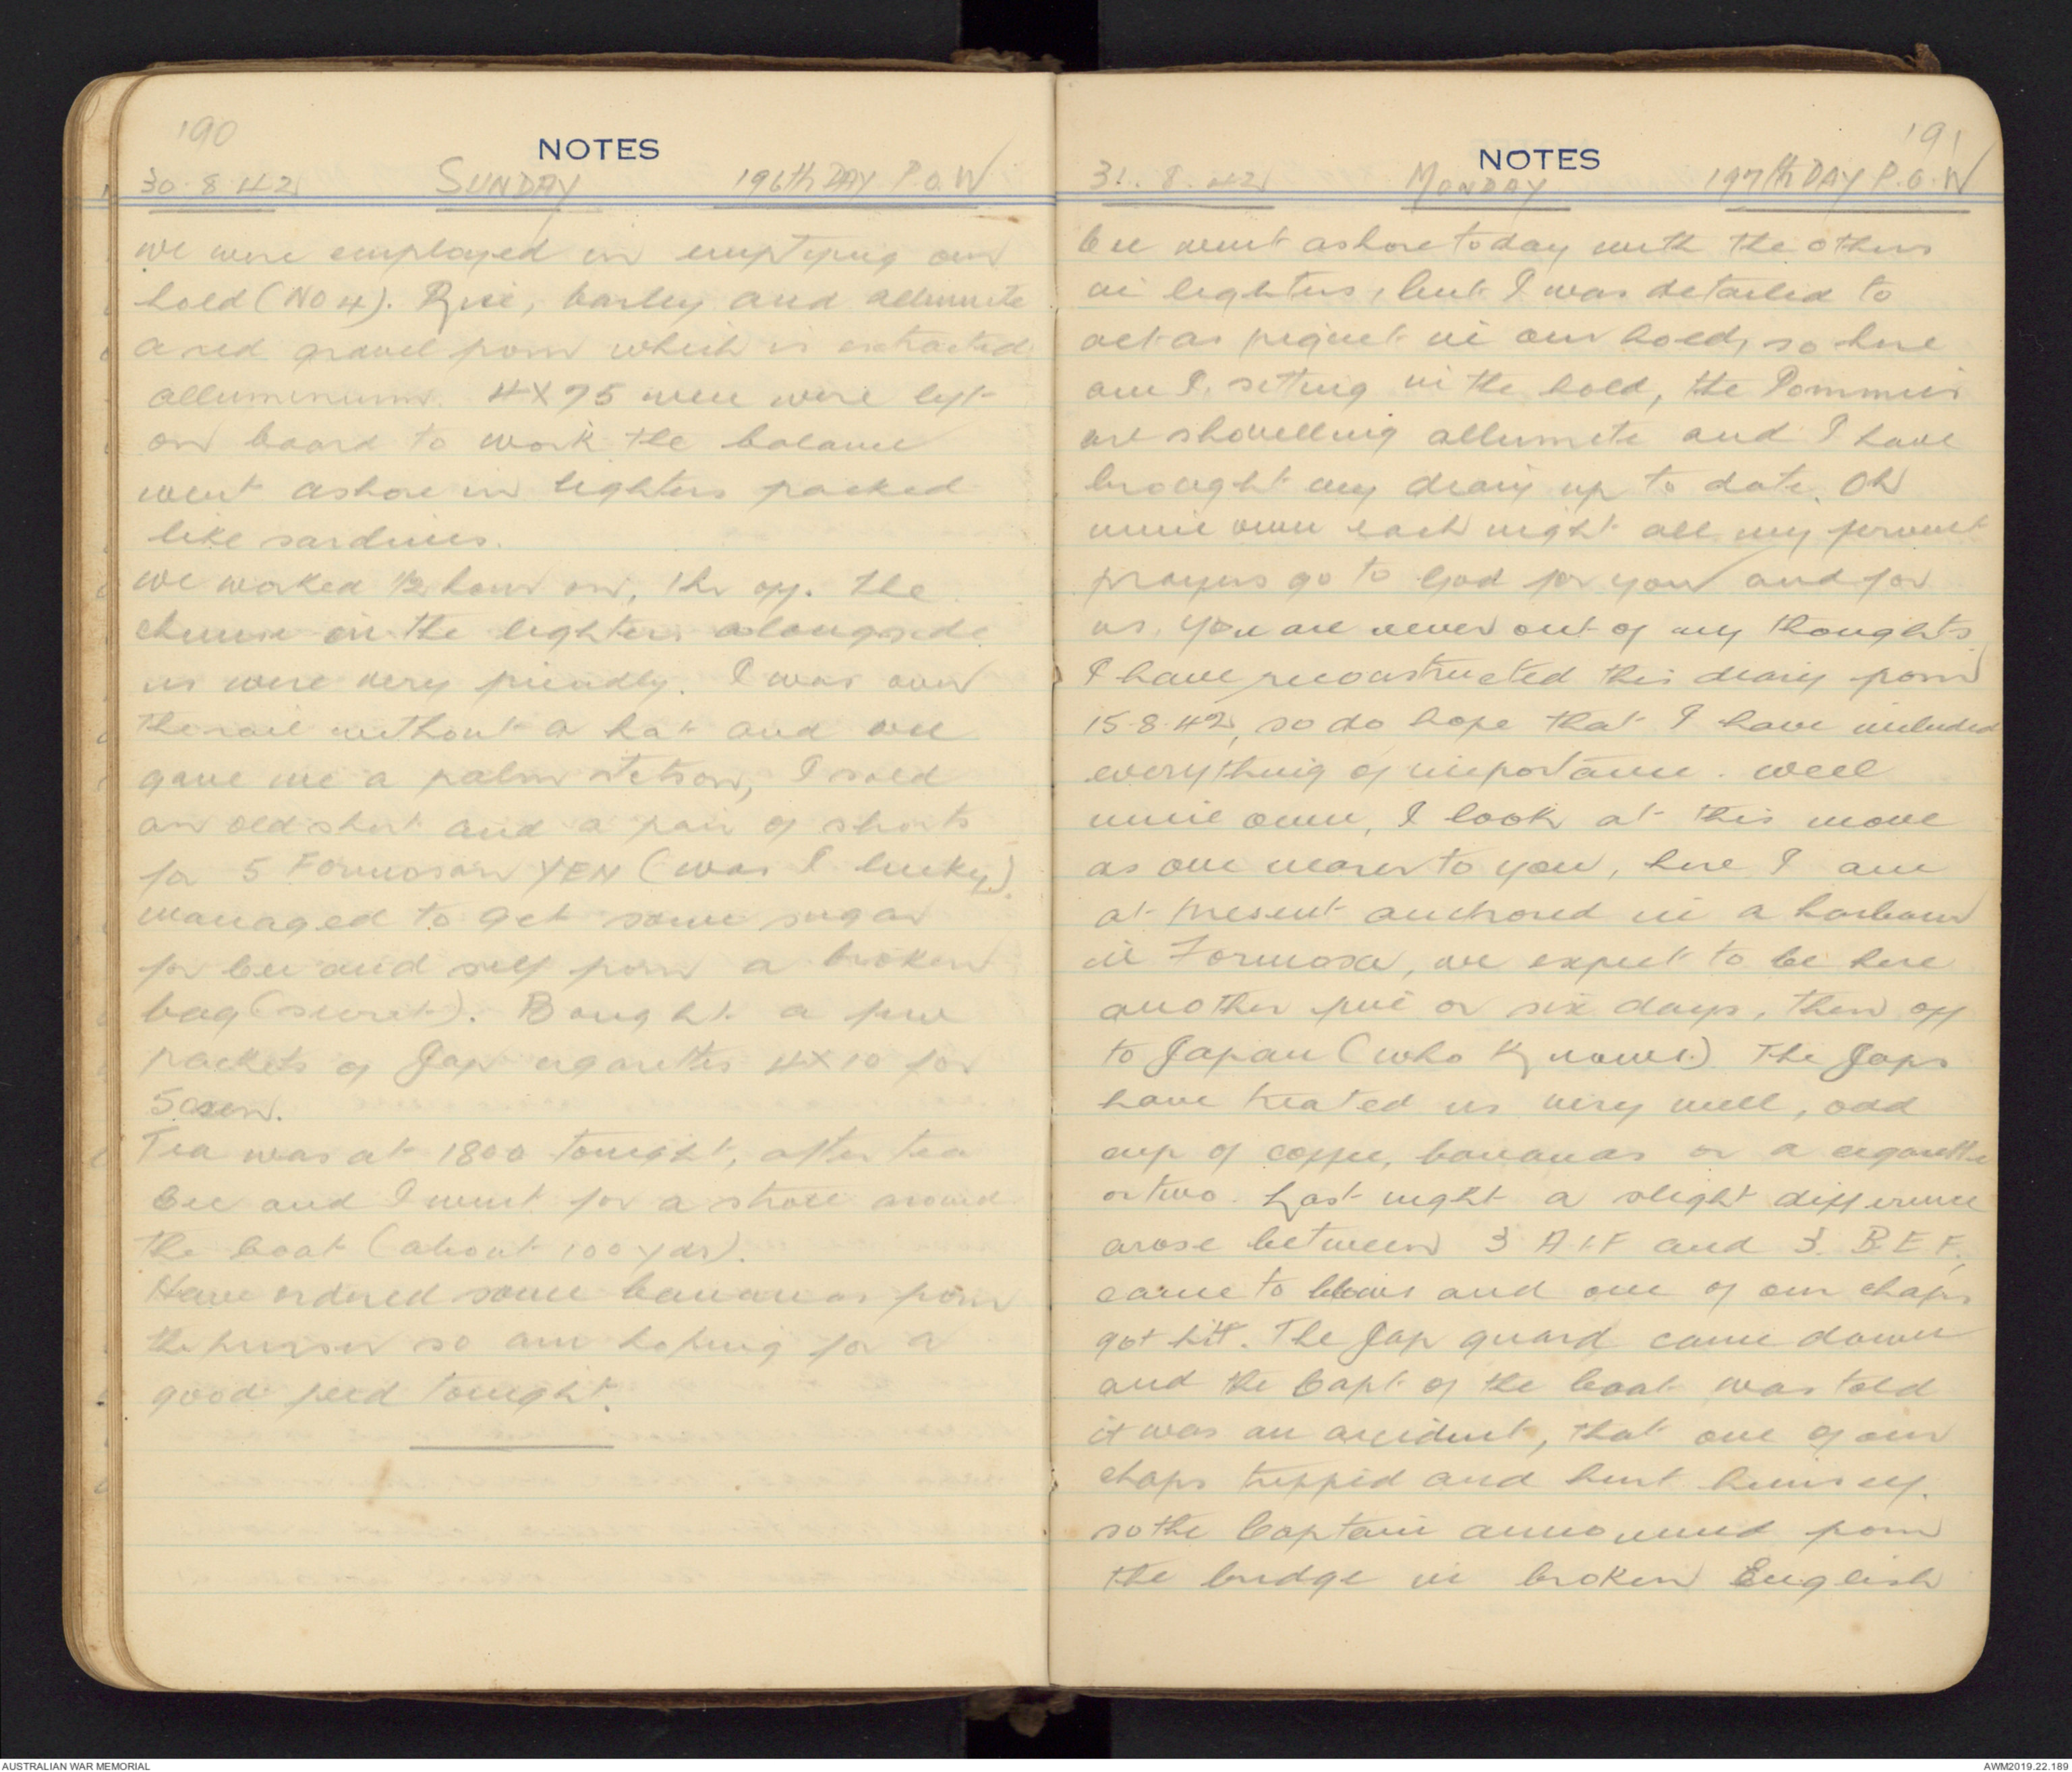 190
NOTES
30.8.42 SUNDAY 196th DAY P.O.W
we were employed in emptying our
hold (NO 4). Rice, barley and allumite
a red gravel from which is extracted
alluminium. 4X75 men were left
on board to work the balance
went ashore in lighters packed
like sardines.
we worked 1/2 hour on, 1 hr off. The
in the lighters alongside
us were very friendly. I was over
the rail without a hat and
gave me a palm stetson, I sold
an old shirt and a pair of shorts
for 5 Formosan YEN (was I lucky).
managed to get some sugar
for Cec and self from a broken
bag (secret). Bought a few
packets of Jap cigarettes 4X10 for
50 sen.
Tea was at 1800 tonight, after tea
Cec and I went for a stroll around
the boat (about 100 yds).
Have ordered some bananas from
the purser so am hoping for a
good feed tonight.
191
NOTES
31.8.42 MONDAY 197th DAY P.O.W
Cec went ashore today with the others
in lighters, but I was detailed to
act as piquet in our hold, so here
am I. sitting in the hold, the Pommies
are shovelling allumite and I have
brought my diary up to date. Oh
mine own each night all my fervent
prayers go to God for you and for
us. You are never out of my thoughts.
I have reconstructed this diary from
15.8.42, so do hope that I have included
everything of importance. well
mine own, I look at this move
as one nearer to you, here I am
at present anchored in a harbour
in Formosa, we expect to be here
another five or six days, then off
to Japan (who Knows.) The Japs
have treated us very well, odd
cup of coffee, bananas or a cigarette
or two. Last night a slight difference
arose between 3 A.I.F and 3. B.E.F,
came to blows and one of our chaps
got hit. The Jap guard came down
and the Capt of the boat was told
it was an accident, that one of our
chaps tripped and hurt himself.
so the Captain announced from
the bridge in broken English
AUSTRALIAN WAR MEMORIAL
AWM2019.22.189